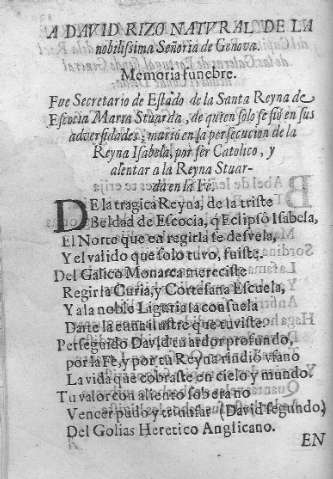 A DAVID RIZO NATVRAL DE LA
nobilissima Señoria de Genova.
Memoria funebre.
Fue Secretario de Estado de la Santa Reyna de
Escocia Maria Stuarda, de quien solo se fiò en sus
adversidades; murió en la persecucion de la
Reyna Isabela, por ser Catolico, y
alentar a la Reyna Stuar-
da en la Fè.
DE la tragica Reyna, de la triste
Beldad de Escocia, q̃ Eclipsò Isabela,
El Norte que en regirla se desvela,
Y el valido que solo tuvo, fuiste.
Del Galico Monarca mereciste
Regir la Curia, y Cortesana Escuela,
Y a la noble Liguria la consuela
Darte la cuna ilustre que tuviste.
Perseguido David tu ardor profundo,
por la Fè, y por tu Reyna rindiò vfano
La vida que cobraste en cielo y mundo.
Tu valor con aliento soberano
Vencer pudo y triunfar (David segundo)
Del Golias Heretico Anglicano.
EN